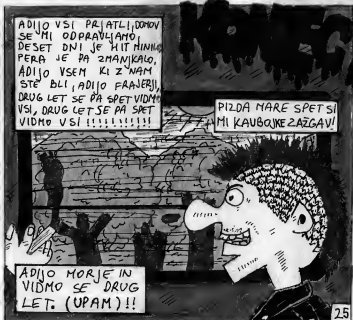 ADIJO VSI PRJATLI, DOMOV
SE MI ODPRAVLJAMO,
DESET DNI JE HIT MINILO
PERA JE PA ZMANJKALO,
ADIJO VSEM KI Z NAM
STE BLI, ADIJO FRAJERJI,
DRUG LET SE PA SPET VIDMO
VSI, DRUG LET SE PA SPET
VIDMO VSI !!!!!!!!!!!
PIZDA MARE SPET SI
MI KAUBOJKE ZAŽGAV!
ADIJO MORJE IN
VIDMO SE DRUG
LET. (UPAM)!!
25